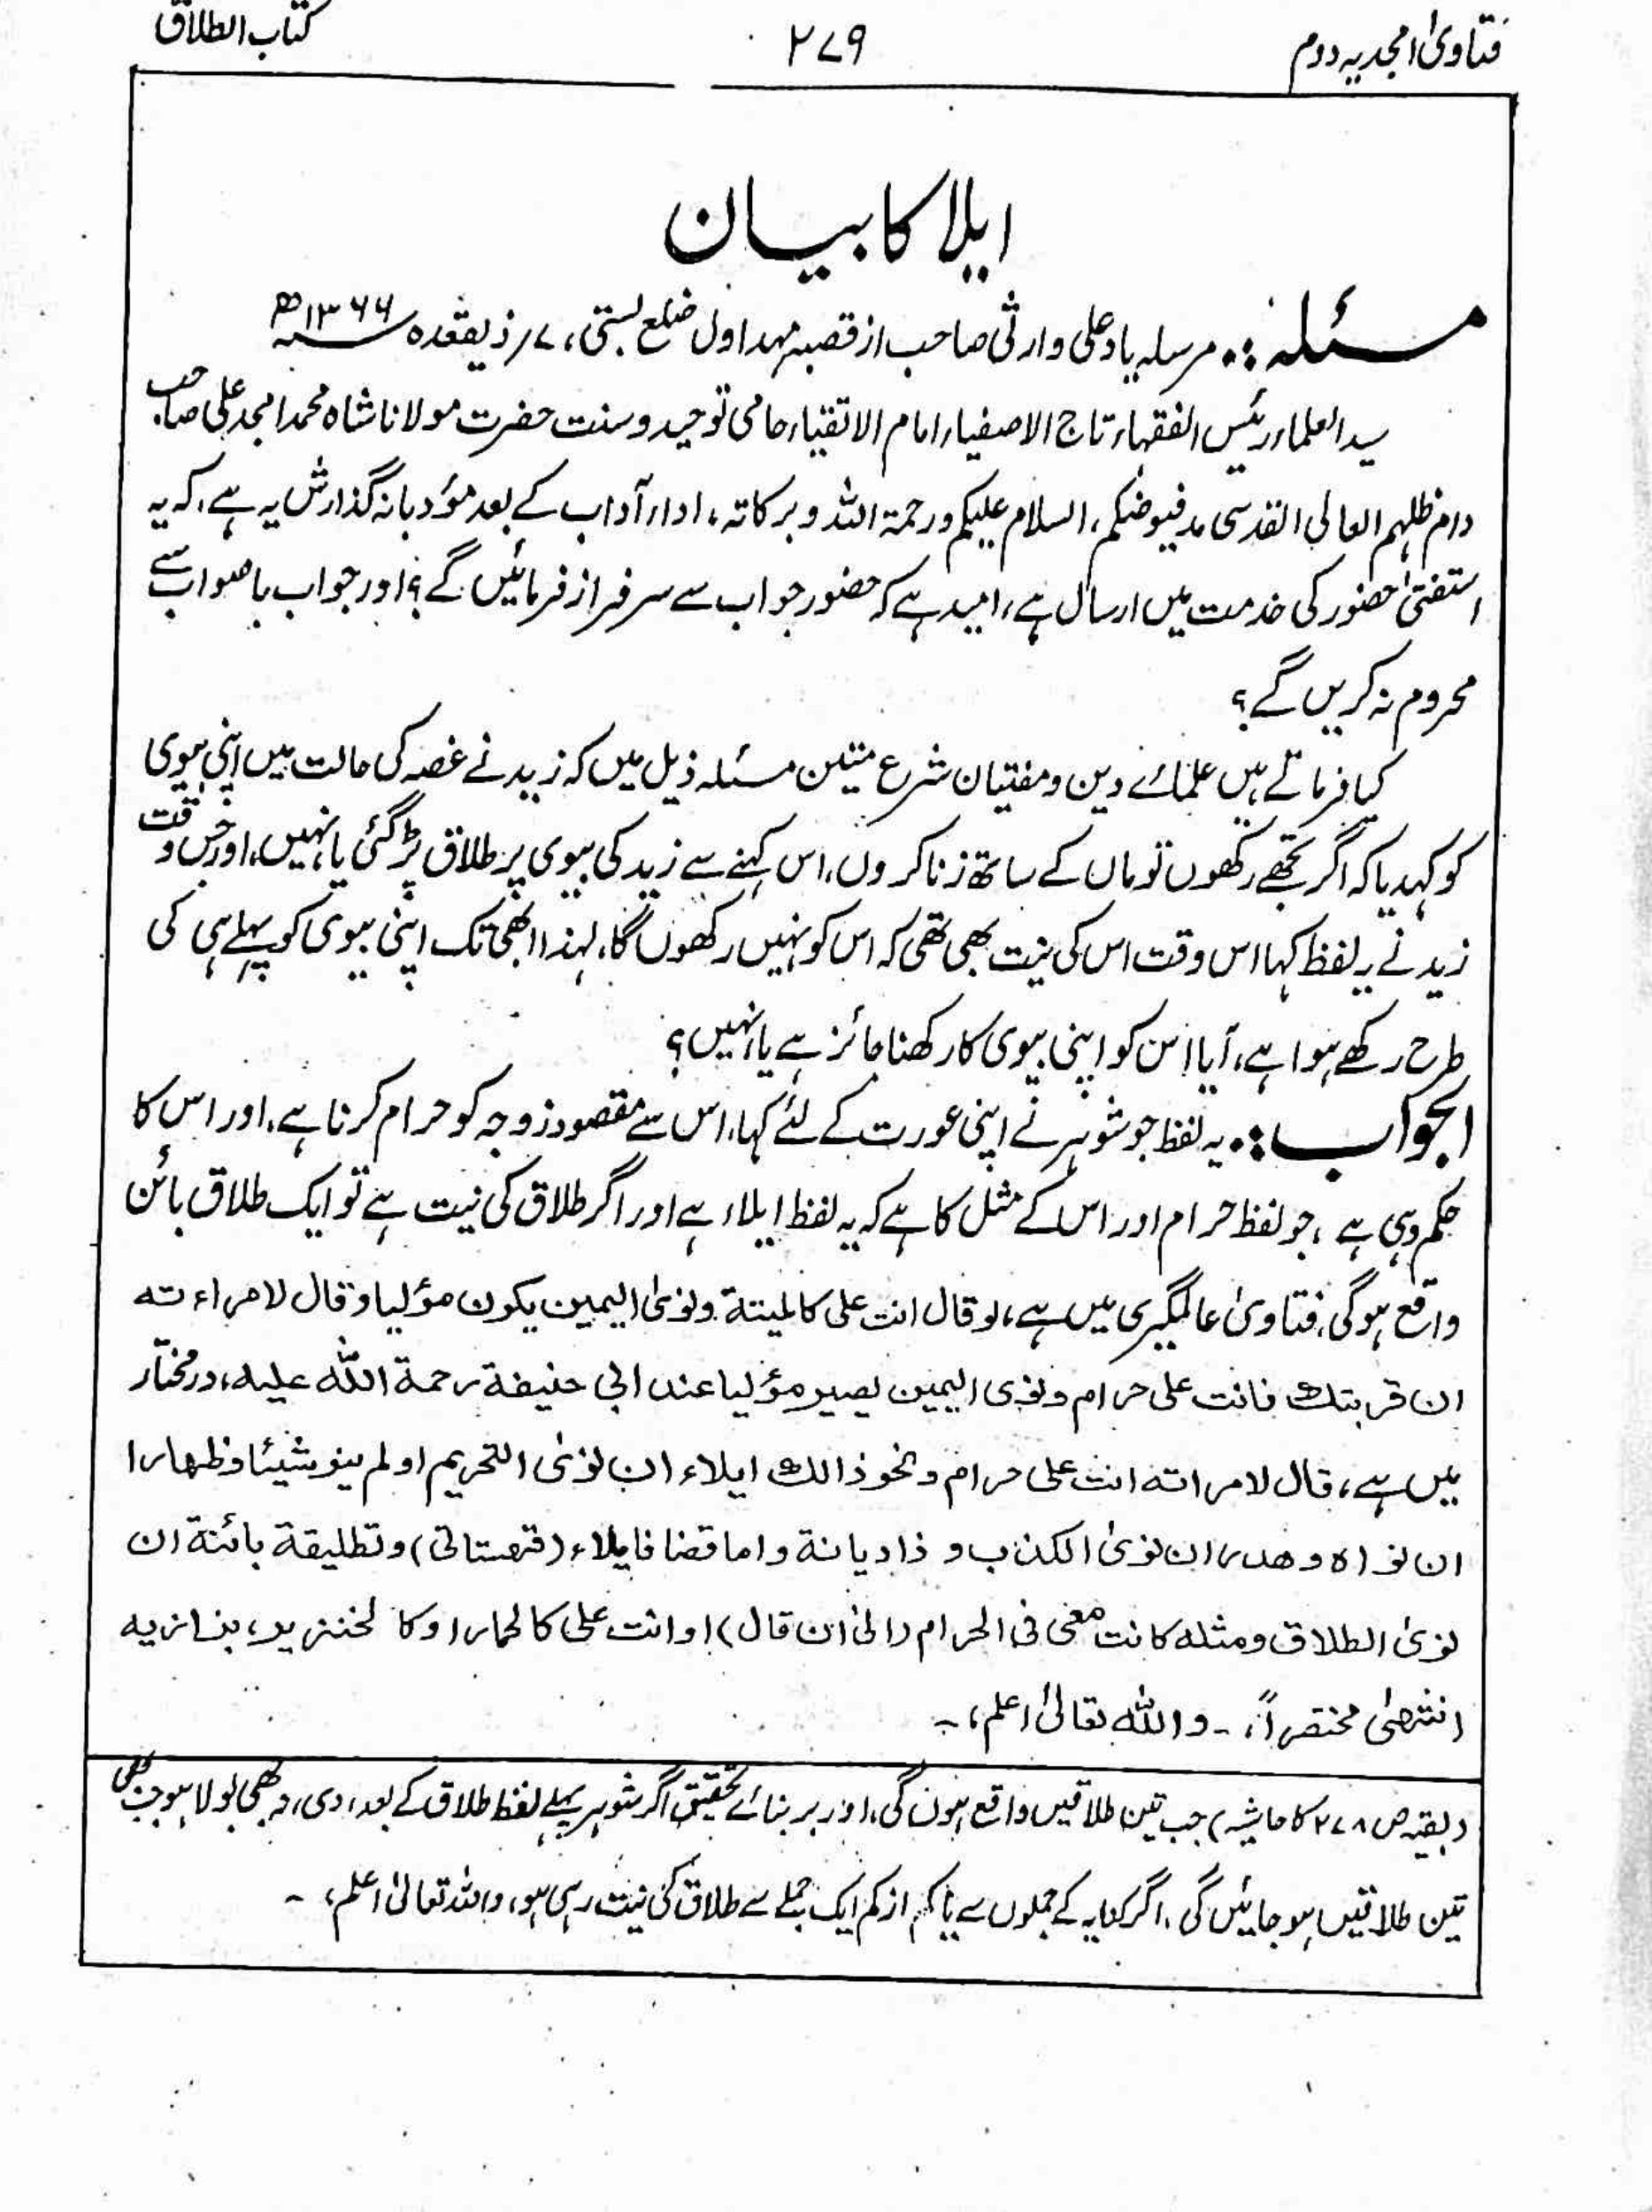 فتاویٰ امجدیہ دوم ۲۷۹ کتاب الطلاق
ایلا کا بیان
مسئلہ :: مرسلہ یاد علی وارثی صاحب از قصبہ مہداول ضلع بستی، ۷؍ ذیقعدہ سنہ ۱۳۶۶ھ
سید العلماء رئیس الفقہاء تاج الاصفیاء امام الاتقیاء حامی توحید و سنت حضرت مولانا شاہ محمد امجد علی صاحب
دام ظلہم العالی القدسی مد فیوضکم، السلام علیکم ورحمۃ اللہ وبرکاتہ، اداء آداب کے بعد مؤدبانہ گذارش یہ ہے، کہ یہ
استفتیٰ حضور کی خدمت میں ارسال ہے، امید ہے کہ حضور جواب سے سرفراز فرمائیں گے؟ اور جواب باصواب سے
محروم نہ کریں گے؟
کیا فرماتے ہیں علمائے دین و مفتیان شرع متین مسئلہ ذیل میں کہ زید نے غصہ کی حالت میں اپنی بیوی
کو کہدیا کہ اگر تجھے رکھوں تو ماں کے ساتھ زنا کروں، اس کہنے سے زید کی بیوی پر طلاق پڑ گئی یا نہیں، اور جس وقت
زید نے یہ لفظ کہا اس وقت اس کی نیت بھی تھی کہ اس کو نہیں رکھوں گا، لہذا ابھی تک اپنی بیوی کو پہلے ہی کی
طرح رکھے ہوا ہے، آیا اس کو اپنی بیوی کا رکھنا جائز ہے یا نہیں؟
الجواب :: یہ لفظ جو شوہر نے اپنی عورت کے لئے کہا، اس سے مقصود زوجہ کو حرام کرنا ہے، اور اس کا
حکم وہی ہے، جو لفظ حرام اور اس کے مثل کا ہے کہ یہ لفظ ایلاء ہے اور اگر طلاق کی نیت ہے تو ایک طلاق بائن
واقع ہوگی، فتاویٰ عالمگیری میں ہے، لو قال انت علی کالمیتة ونویٰ الیمین یکون مؤلیا وقال لامراءته
ان قربتك فانت علی حرام ونوی الیمین یصیر مؤلیا عند ابی حنیفة رحمة الله علیه، درمختار
میں ہے، قال لامراته انت علی حرام ونحو ذالك ایلاء ان نویٰ التحریم او لم ینو شیئا وظهارا
ان نواه وهدر ان نویٰ الکذب و ذا دیانة واما قضا فایلاء (قهستانی) وتطلیقة بائنة ان
نویٰ الطلاق ومثله کانت معی فی الحرام (الیٰ ان قال) او انت علی کالحمار او کالخنزیر، بزازیه
انتھیٰ مختصراً، ۔ واللہ تعالیٰ اعلم، ۔
(بقیہ ص ۲۷۸ کا حاشیہ) جب تین طلاقیں واقع ہوں گی، اور بر بنائے تحقیق اگر شوہر پہلے لفظ طلاق کے بعد، دی، نہ بھی بولا ہو جب بھی
تین طلاقیں ہو جائیں گی، اگر کنایہ کے جملوں سے یا کم از کم ایک جملے سے طلاق کی نیت رہی ہو، واللہ تعالیٰ اعلم، ۔